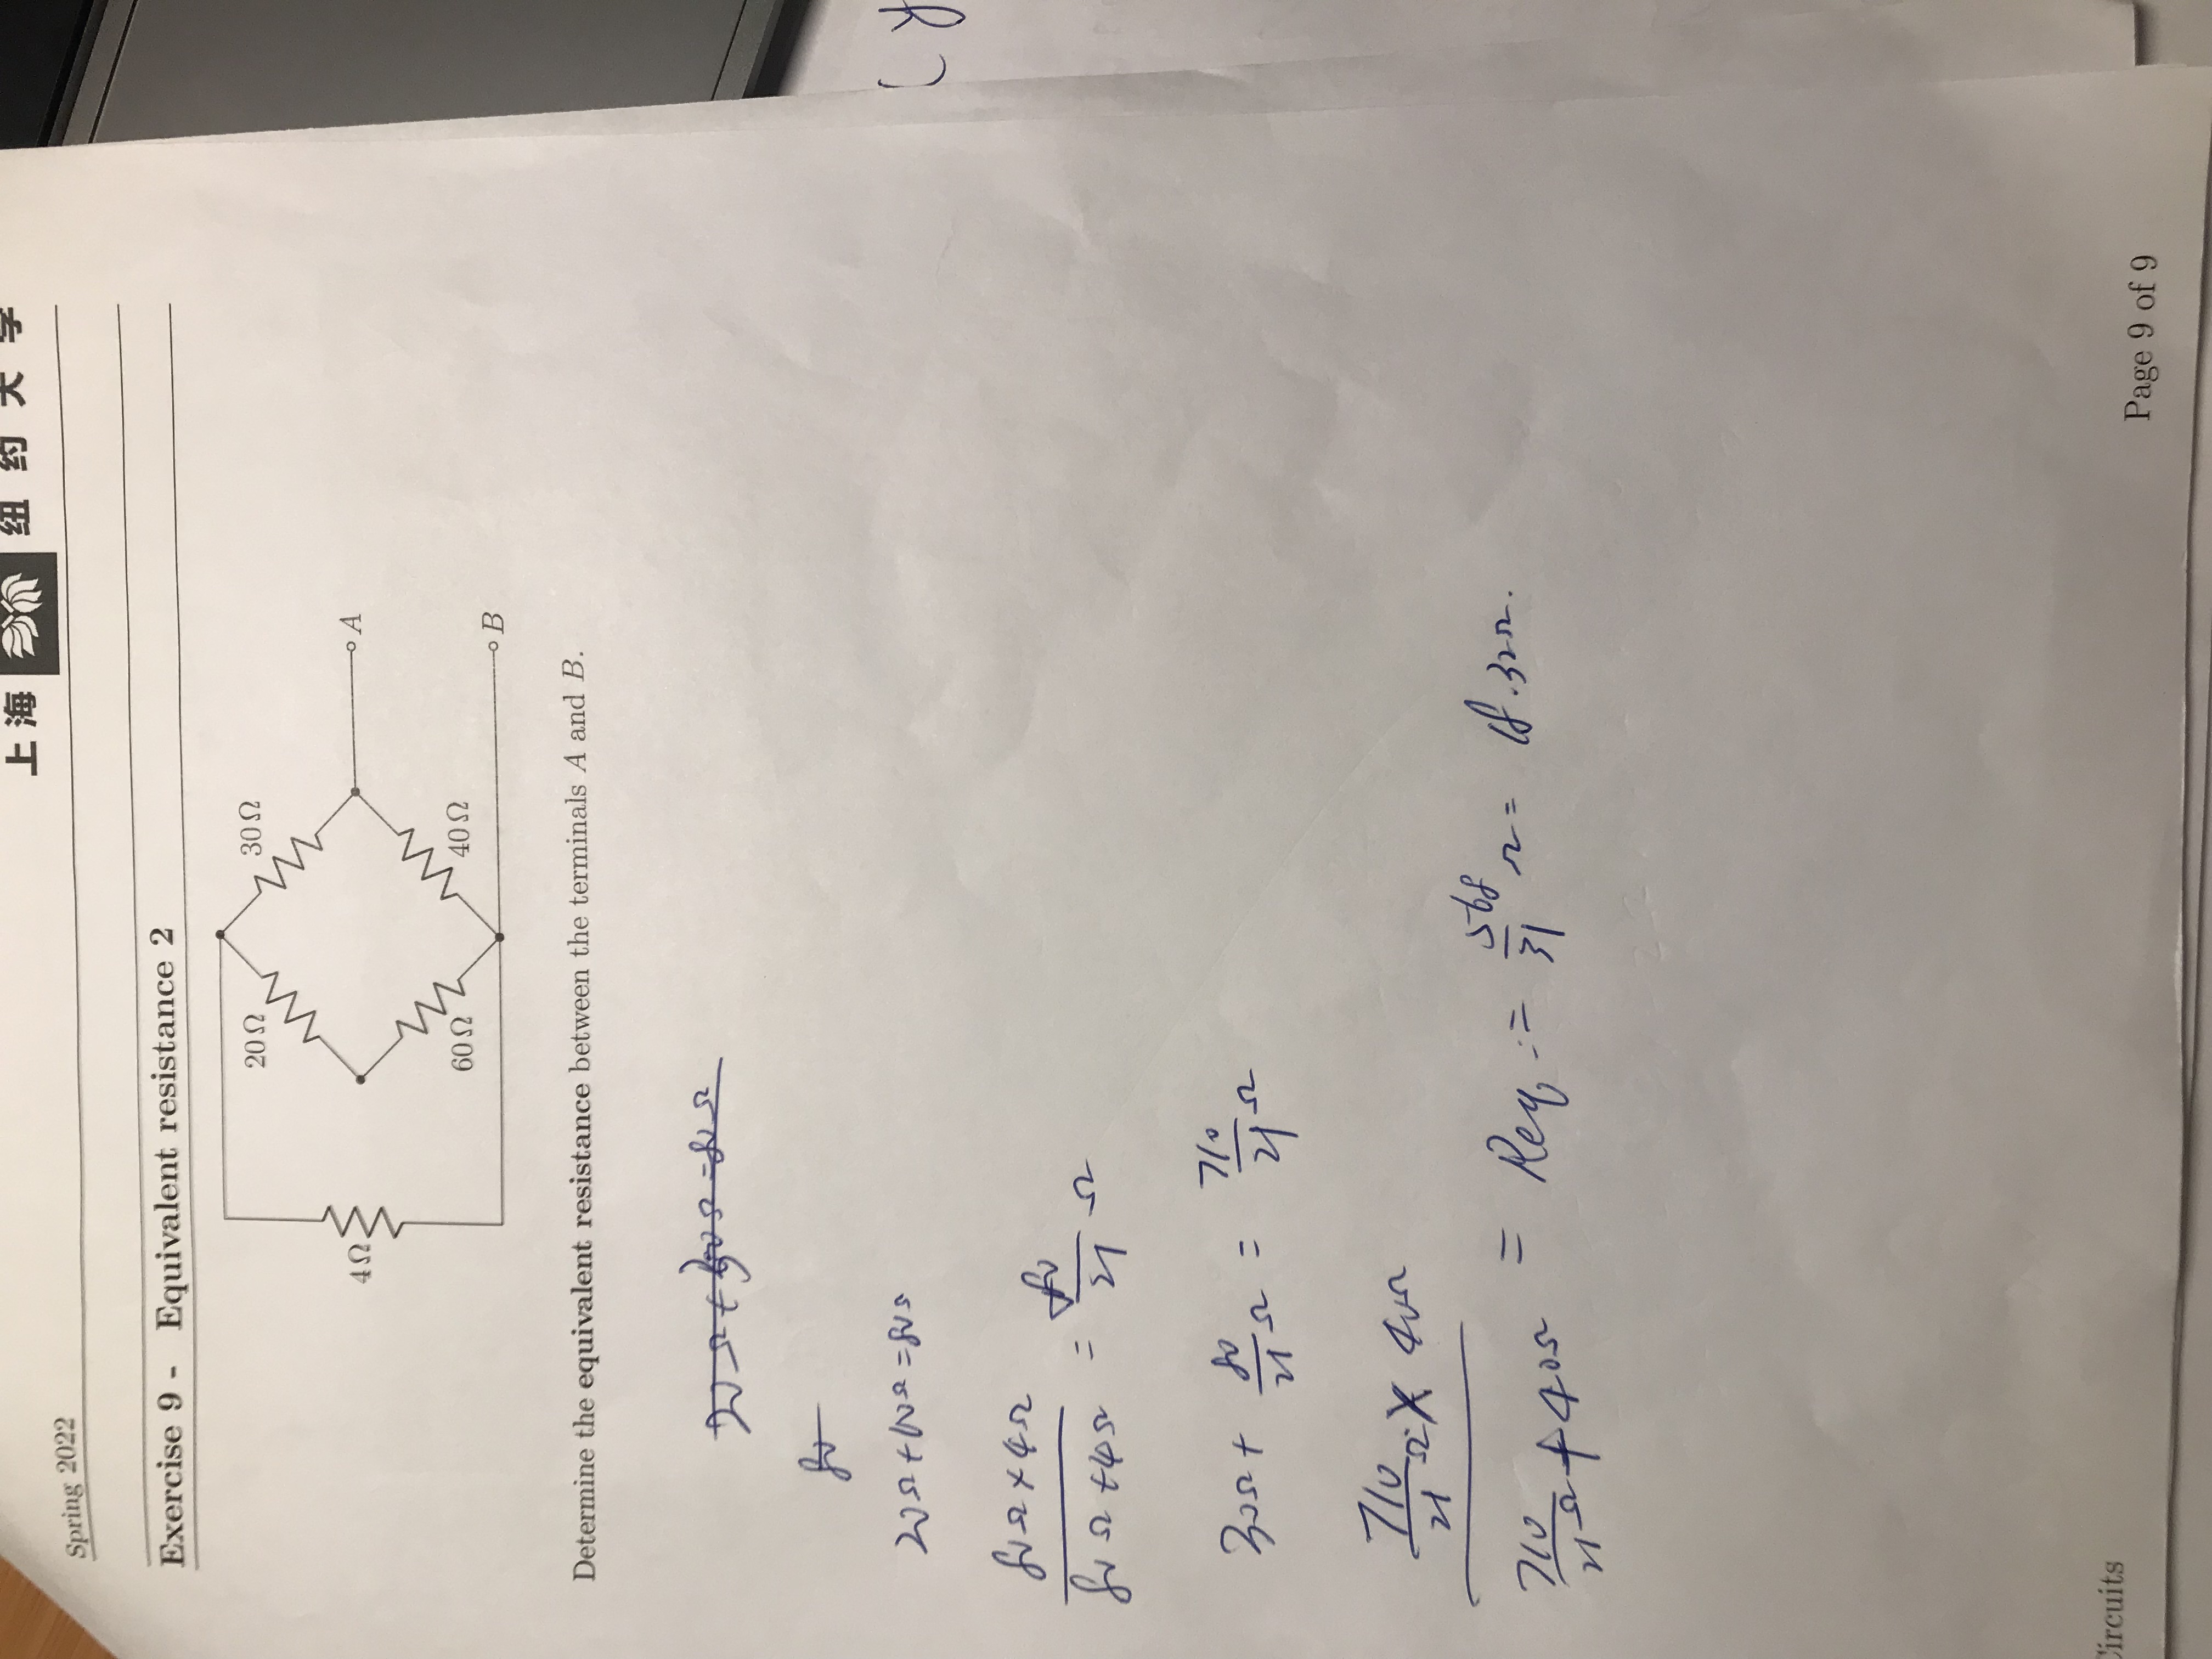 上海 纽约大学
Spring 2022
Exercise 9 - Equivalent resistance 2
20 Ω
30 Ω
4 Ω
A
60 Ω
40 Ω
B
Determine the equivalent resistance between the terminals A and B.
20Ω + 60Ω = 80Ω
80
20Ω + 60Ω = 80Ω
80Ω × 4Ω
80Ω + 4Ω
=
80
21
Ω
30Ω + 80/21 Ω = 710/21 Ω
710/21 Ω × 40Ω
710/21 Ω + 40Ω
= Req := 568/31 Ω = 18.32Ω.
( y
Circuits
Page 9 of 9